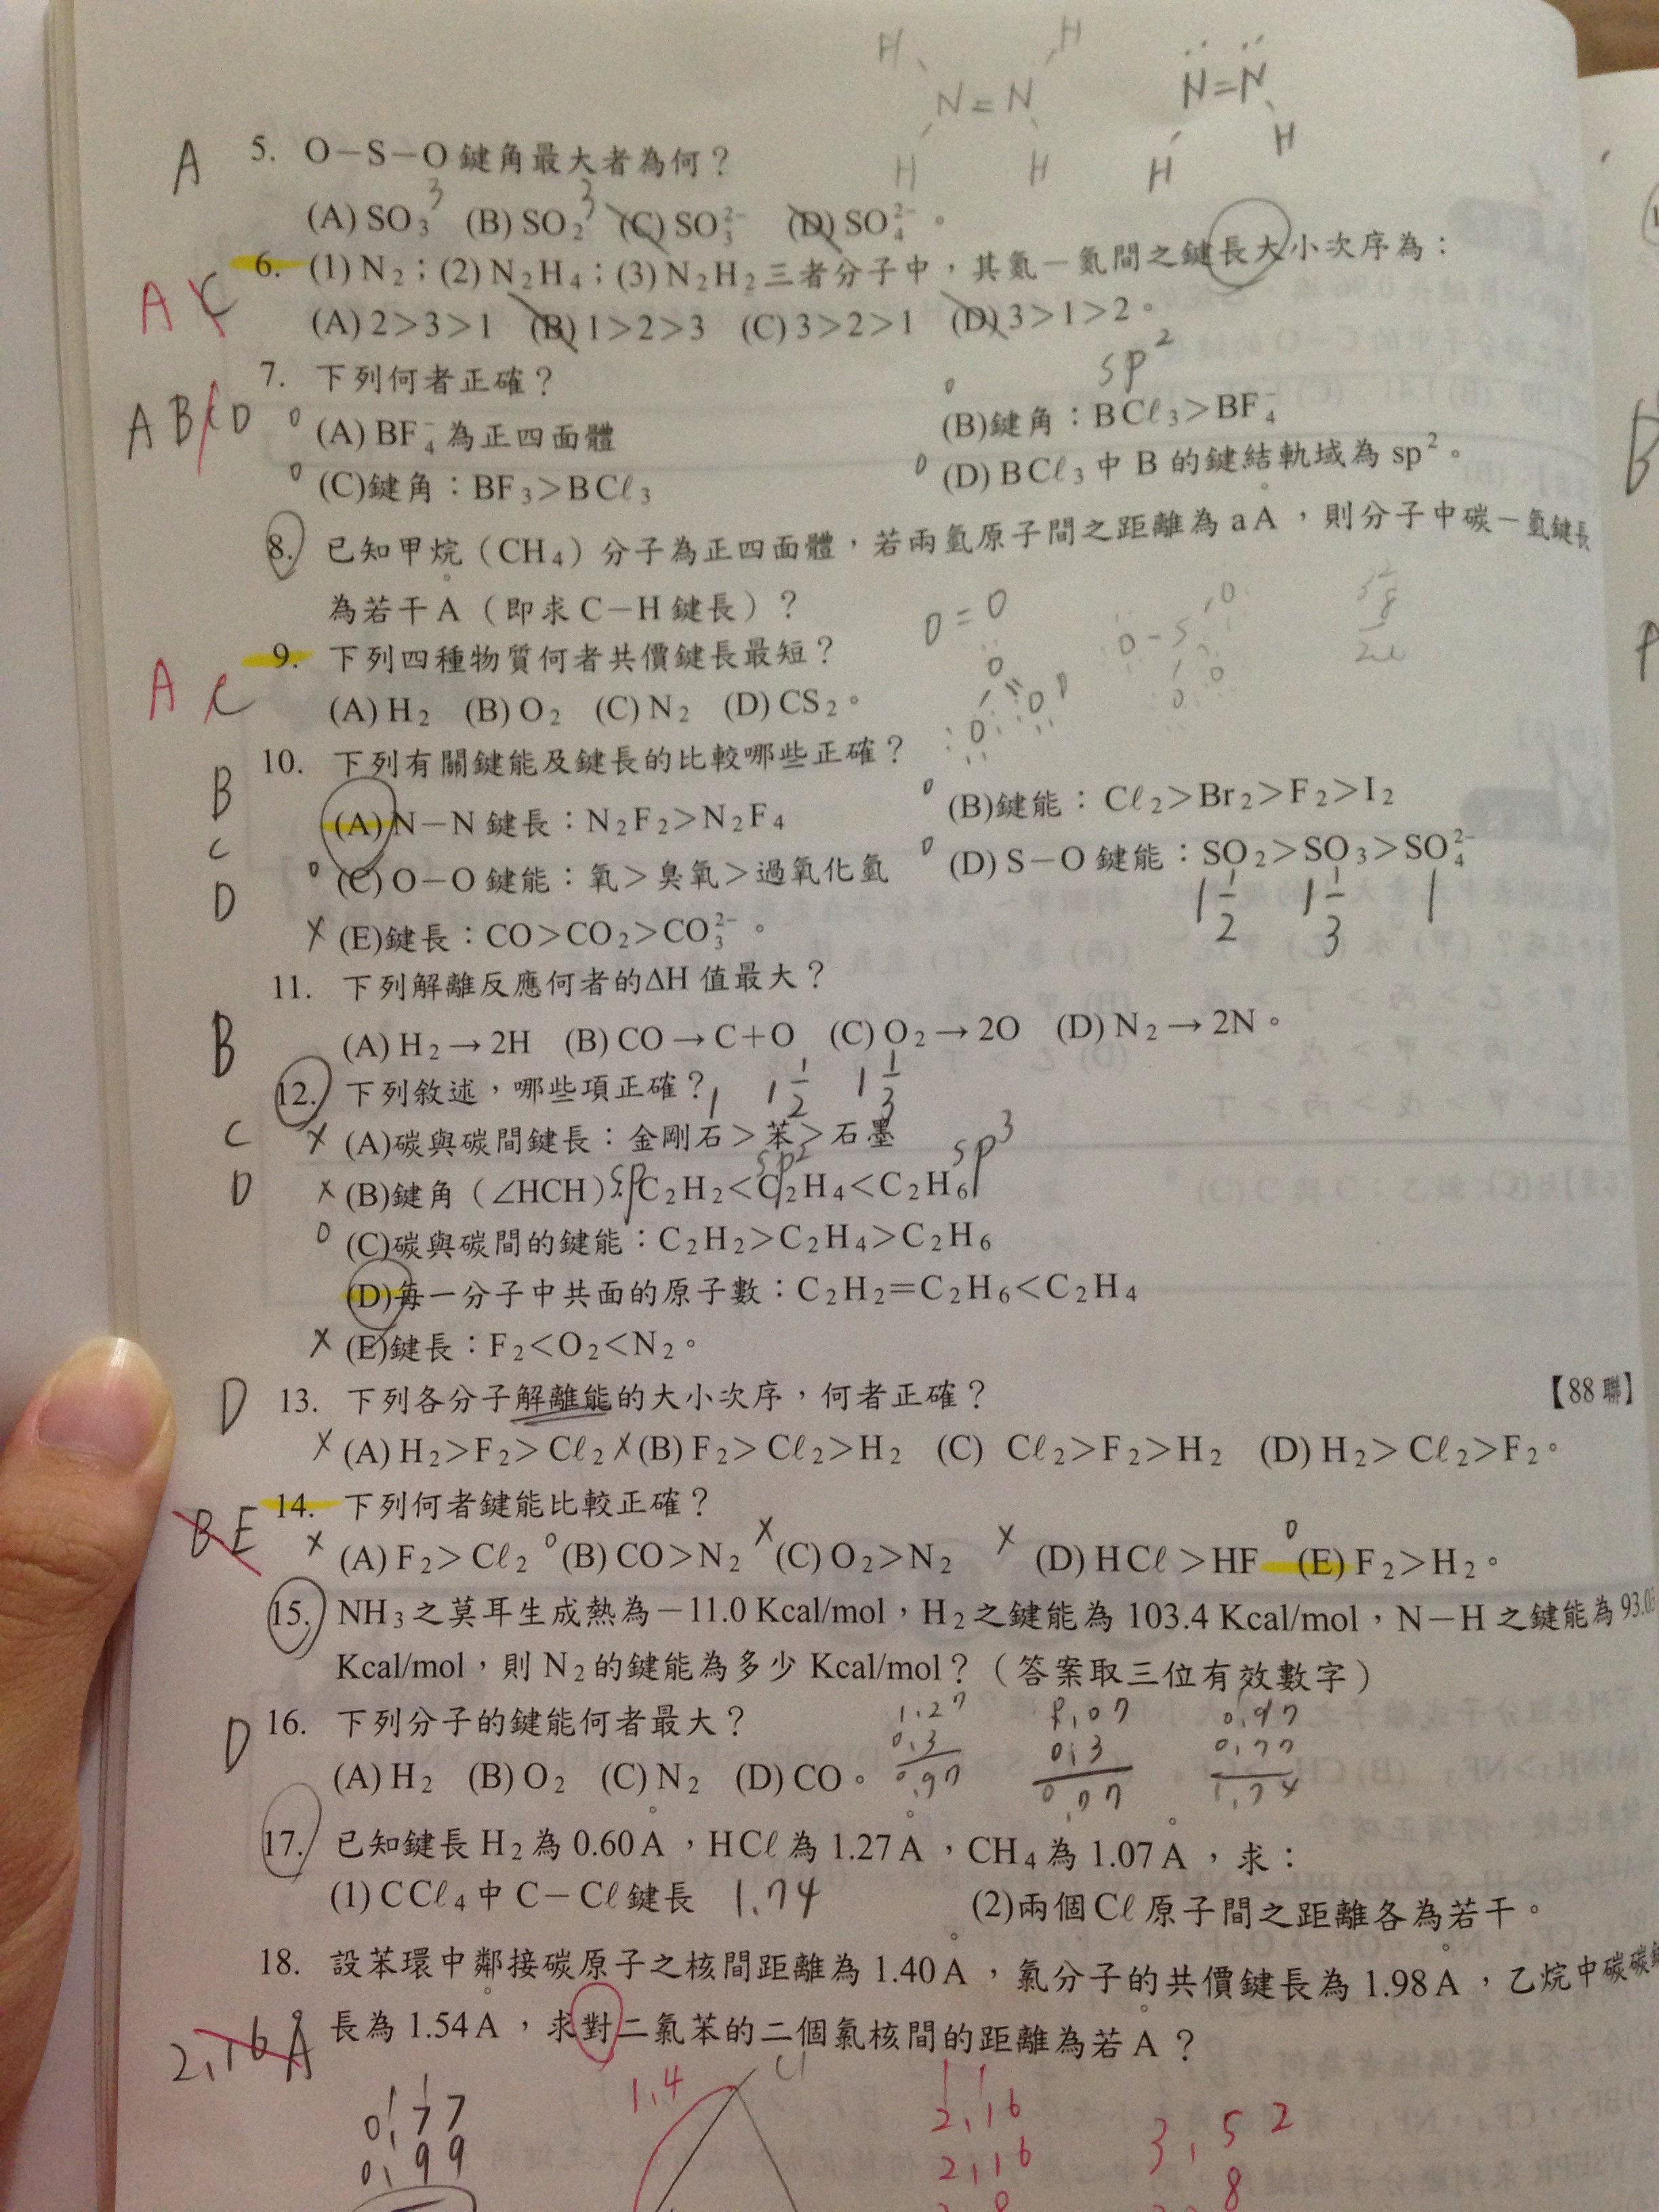 H H
N=N N=N
H H H H
A 5. O－S－O鍵角最大者為何？
3 3
(A) SO₃ (B) SO₂ (C) SO₃²⁻ (D) SO₄²⁻。
6. (1) N₂；(2) N₂H₄；(3) N₂H₂三者分子中，其氮－氮間之鍵長大小次序為：
A C
(A) 2>3>1 (B) 1>2>3 (C) 3>2>1 (D) 3>1>2。
7. 下列何者正確？ sp²
ABCD (A) BF₄⁻為正四面體 (B)鍵角：BCℓ₃>BF₄⁻
(C)鍵角：BF₃>BCℓ₃ (D) BCℓ₃中B的鍵結軌域為sp²。
8. 已知甲烷（CH₄）分子為正四面體，若兩氫原子間之距離為aÅ，則分子中碳－氫鍵長
為若干Å（即求C－H鍵長）？
O=O
9. 下列四種物質何者共價鍵長最短？
A C
(A) H₂ (B) O₂ (C) N₂ (D) CS₂。
10. 下列有關鍵能及鍵長的比較哪些正確？
B (A) N－N鍵長：N₂F₂>N₂F₄ (B)鍵能：Cℓ₂>Br₂>F₂>I₂
C (C) O－O鍵能：氧>臭氧>過氧化氫 (D) S－O鍵能：SO₂>SO₃>SO₄²⁻
D 1 1/2 1 1/3 1
x (E)鍵長：CO>CO₂>CO₃²⁻。
11. 下列解離反應何者的ΔH值最大？
B (A) H₂→2H (B) CO→C+O (C) O₂→2O (D) N₂→2N。
12. 下列敘述，哪些項正確？ 1 1 1/2 1 1/3
C x (A)碳與碳間鍵長：金剛石>苯>石墨
sp sp² sp³
D x (B)鍵角（∠HCH）：C₂H₂<C₂H₄<C₂H₆
(C)碳與碳間的鍵能：C₂H₂>C₂H₄>C₂H₆
(D)每一分子中共面的原子數：C₂H₂=C₂H₆<C₂H₄
x (E)鍵長：F₂<O₂<N₂。
D 13. 下列各分子解離能的大小次序，何者正確？ 【88聯】
x (A) H₂>F₂>Cℓ₂ x (B) F₂>Cℓ₂>H₂ (C) Cℓ₂>F₂>H₂ (D) H₂>Cℓ₂>F₂。
14. 下列何者鍵能比較正確？
BE x (A) F₂>Cℓ₂ (B) CO>N₂ x (C) O₂>N₂ x (D) HCℓ>HF (E) F₂>H₂。
15. NH₃之莫耳生成熱為－11.0 Kcal/mol，H₂之鍵能為103.4 Kcal/mol，N－H之鍵能為93.0
Kcal/mol，則N₂的鍵能為多少Kcal/mol？（答案取三位有效數字）
D 16. 下列分子的鍵能何者最大？
1.27 1.07 0.97
0.3 0.3 0.77
0.97 0.77 1.74
(A) H₂ (B) O₂ (C) N₂ (D) CO。
17. 已知鍵長H₂為0.60Å，HCℓ為1.27Å，CH₄為1.07Å，求：
(1) CCℓ₄中C－Cℓ鍵長 1.74 (2)兩個Cℓ原子間之距離各為若干。
18. 設苯環中鄰接碳原子之核間距離為1.40Å，氯分子的共價鍵長為1.98Å，乙烷中碳碳鍵
長為1.54Å，求對二氯苯的二個氯核間的距離為若Å？
2.16Å
0.77 1.4 Cl 2.16 3.52
0.99 2.16 8